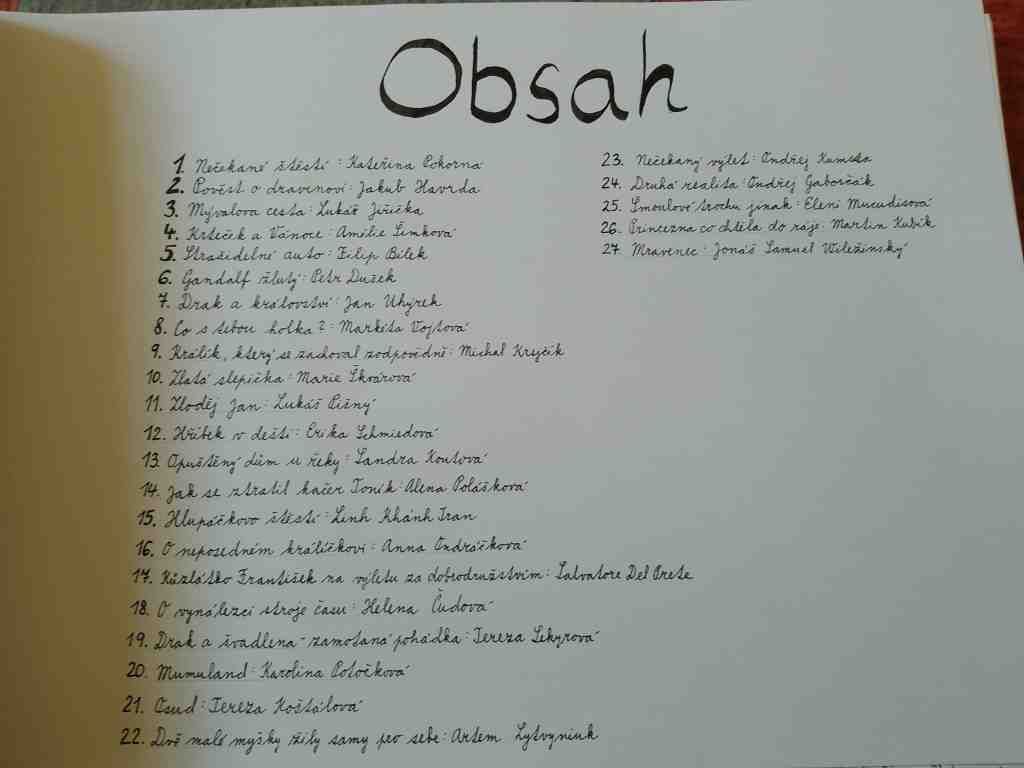 Obsah
1. Nečekané štěstí : Kateřina Pokorná
2. Pověst o dravinovi: Jakub Havrda
3. Mývalova cesta: Lukáš Jiřička
4. Krteček a Vánoce: Amélie Šimková
5. Strašidelné auto: Filip Bílek
6. Gandalf žlutý: Petr Dušek
7. Drak a království: Jan Uhýrek
8. Co s tebou holka?: Markéta Vojtová
9. Králík, který se zachoval zodpovědně: Michal Krejčík
10. Zlatá slepička: Marie Škvárová
11. Zloděj Jan: Lukáš Pišný
12. Hříbek v dešti: Erika Schmiedová
13. Opuštěný dům u řeky: Sandra Koutová
14. Jak se ztratil kačer Toník: Alena Polášková
15. Hlupáčkovo štěstí: Linh Khánh Tran
16. O neposedném králíčkovi: Anna Ondráčková
17. Kůzlátko František na výletu za dobrodružstvím: Salvatore Del Prete
18. O vynálezci stroje času: Helena Čudová
19. Drak a švadlena - zamotaná pohádka: Tereza Sekyrová
20. Mumuland: Karolína Potočková
21. Osud: Tereza Košťálová
22. Dvě malé myšky žily samy pro sebe: Artem Lytvyniuk
23. Nečekaný výlet: Ondřej
24. Druhá realita: Ondřej Gaborčák
25. Šmoulové trochu jinak: Eleni Mucudisová
26. Princezna co chtěla do ráje: Martin Kubík
27. Mravenec: Jonáš Samuel Wiležinský